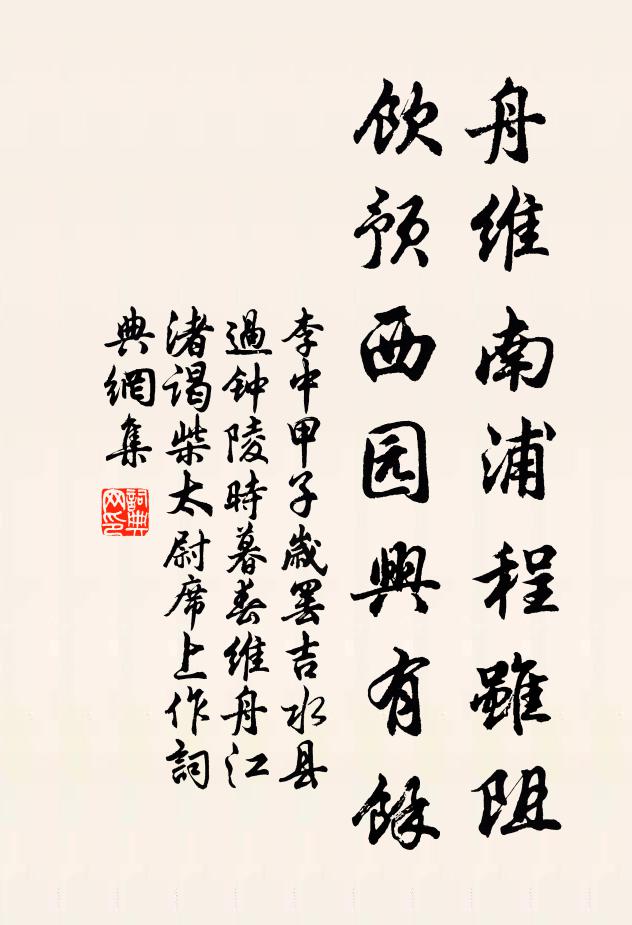 舟维南浦程雖阻
饮预西园興有餘
李中甲子歲罢吉水县
過钟陵時暮春维舟江
渚谒柴太尉席上作詞
典網集
詞典网印